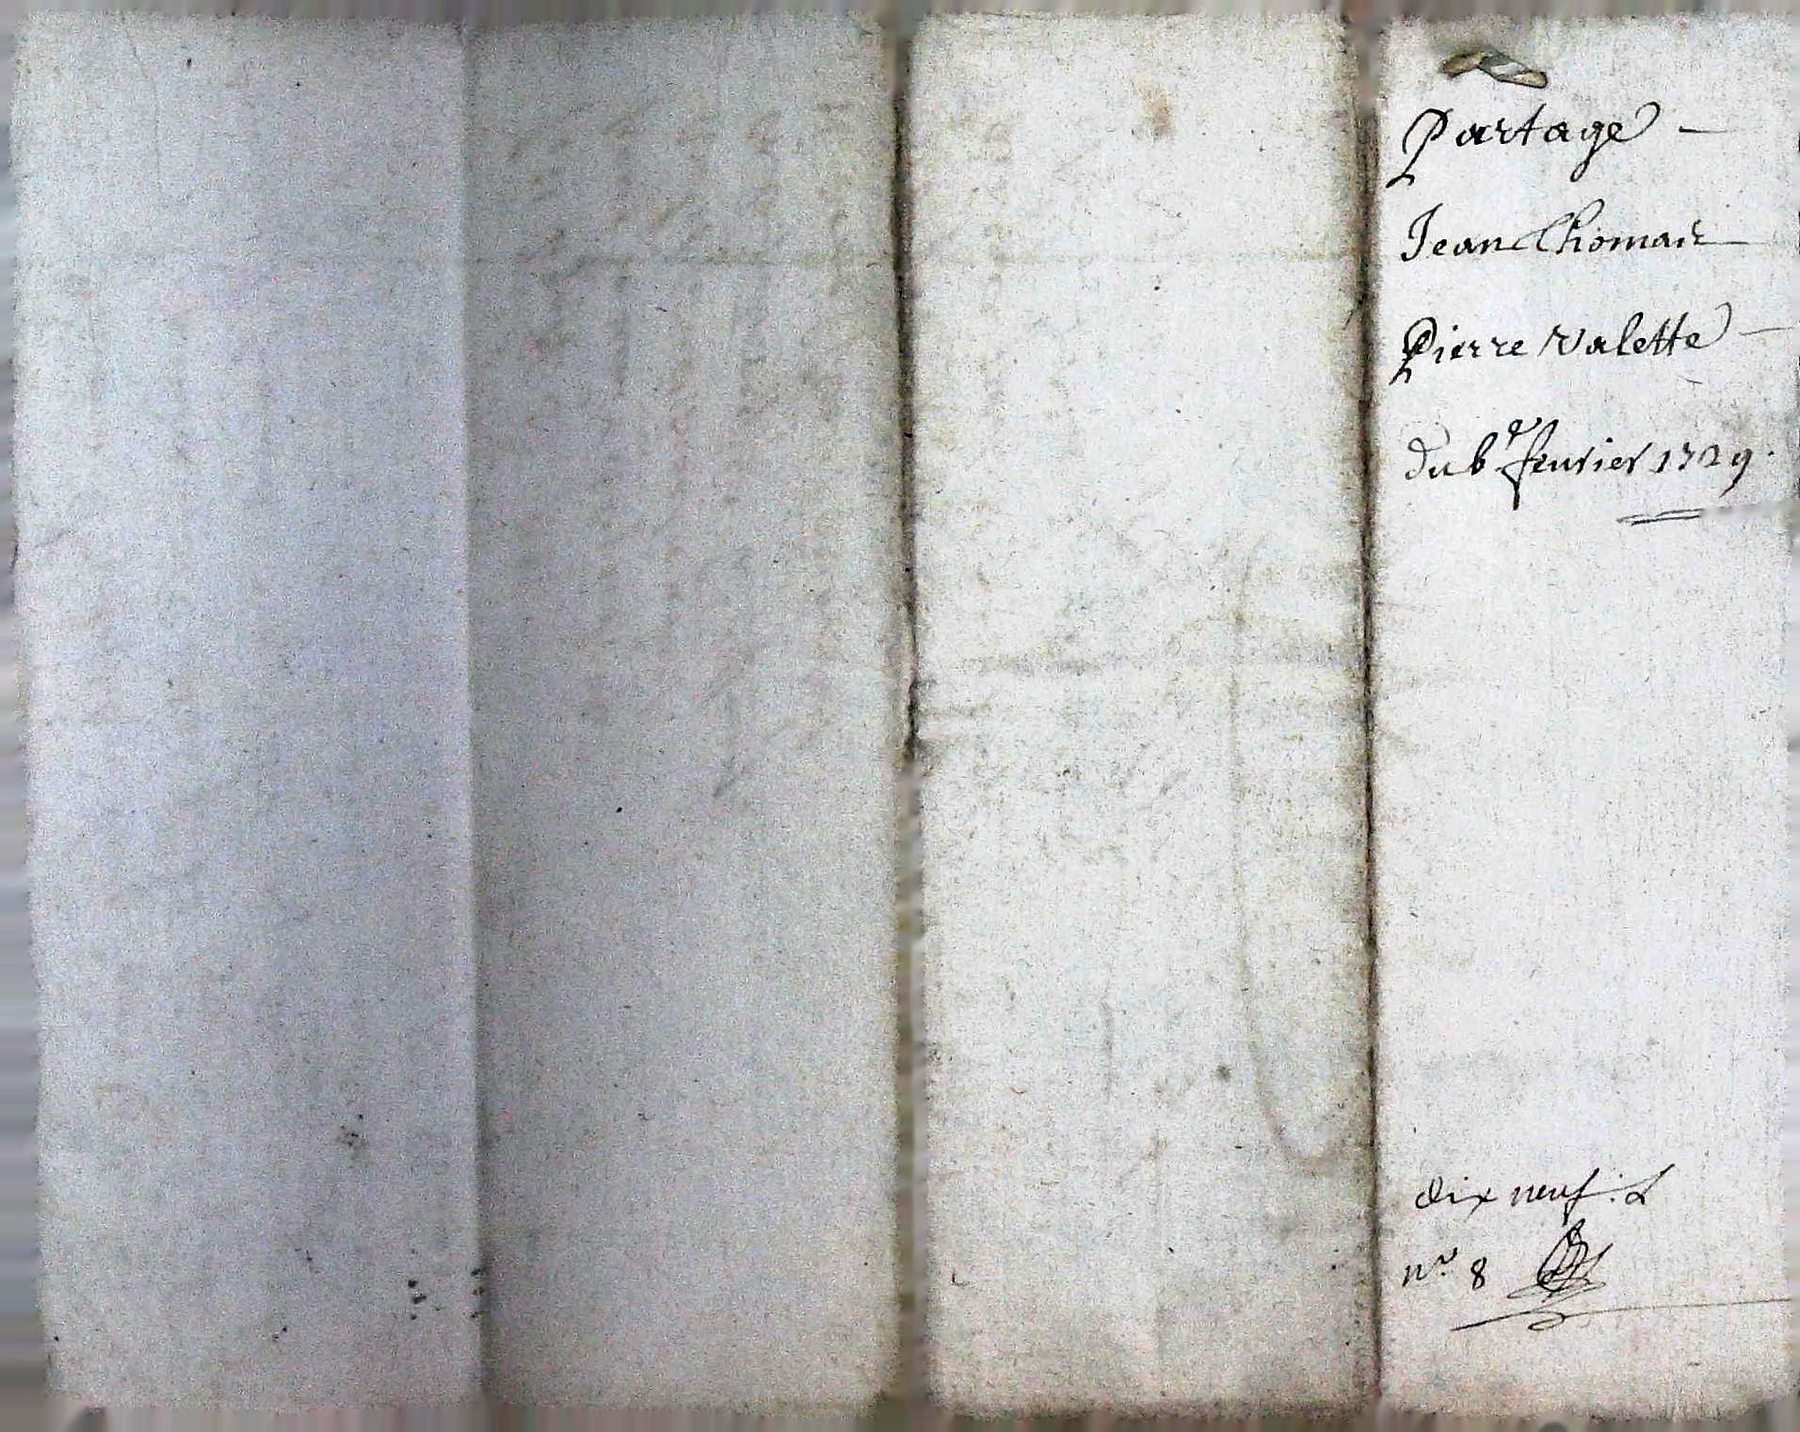 Partage
Jean Chomaix
Pierre Valette
du 6e feurier 1729.
dix neuf: L
n.º 8